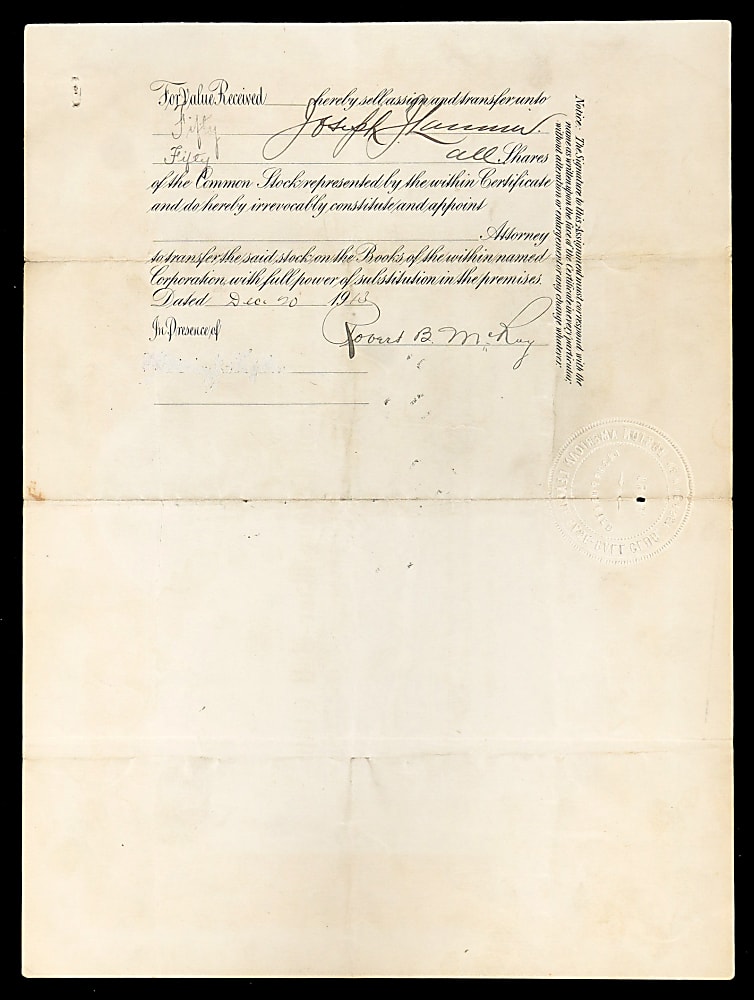 For Value Received hereby sell, assign and transfer unto
Fifty Joseph J. Lannin.
Fifty all Shares
of the Common Stock represented by the within Certificate
and do hereby irrevocably constitute and appoint
Attorney
to transfer the said stock on the Books of the within named
Corporation with full power of substitution in the premises.
Dated Dec 20 1913
In Presence of
Robert B. McRoy
Notice: The Signature to this Assignment must correspond with the
name as written upon the face of the Certificate in every particular,
without alteration or enlargement or any change whatever.